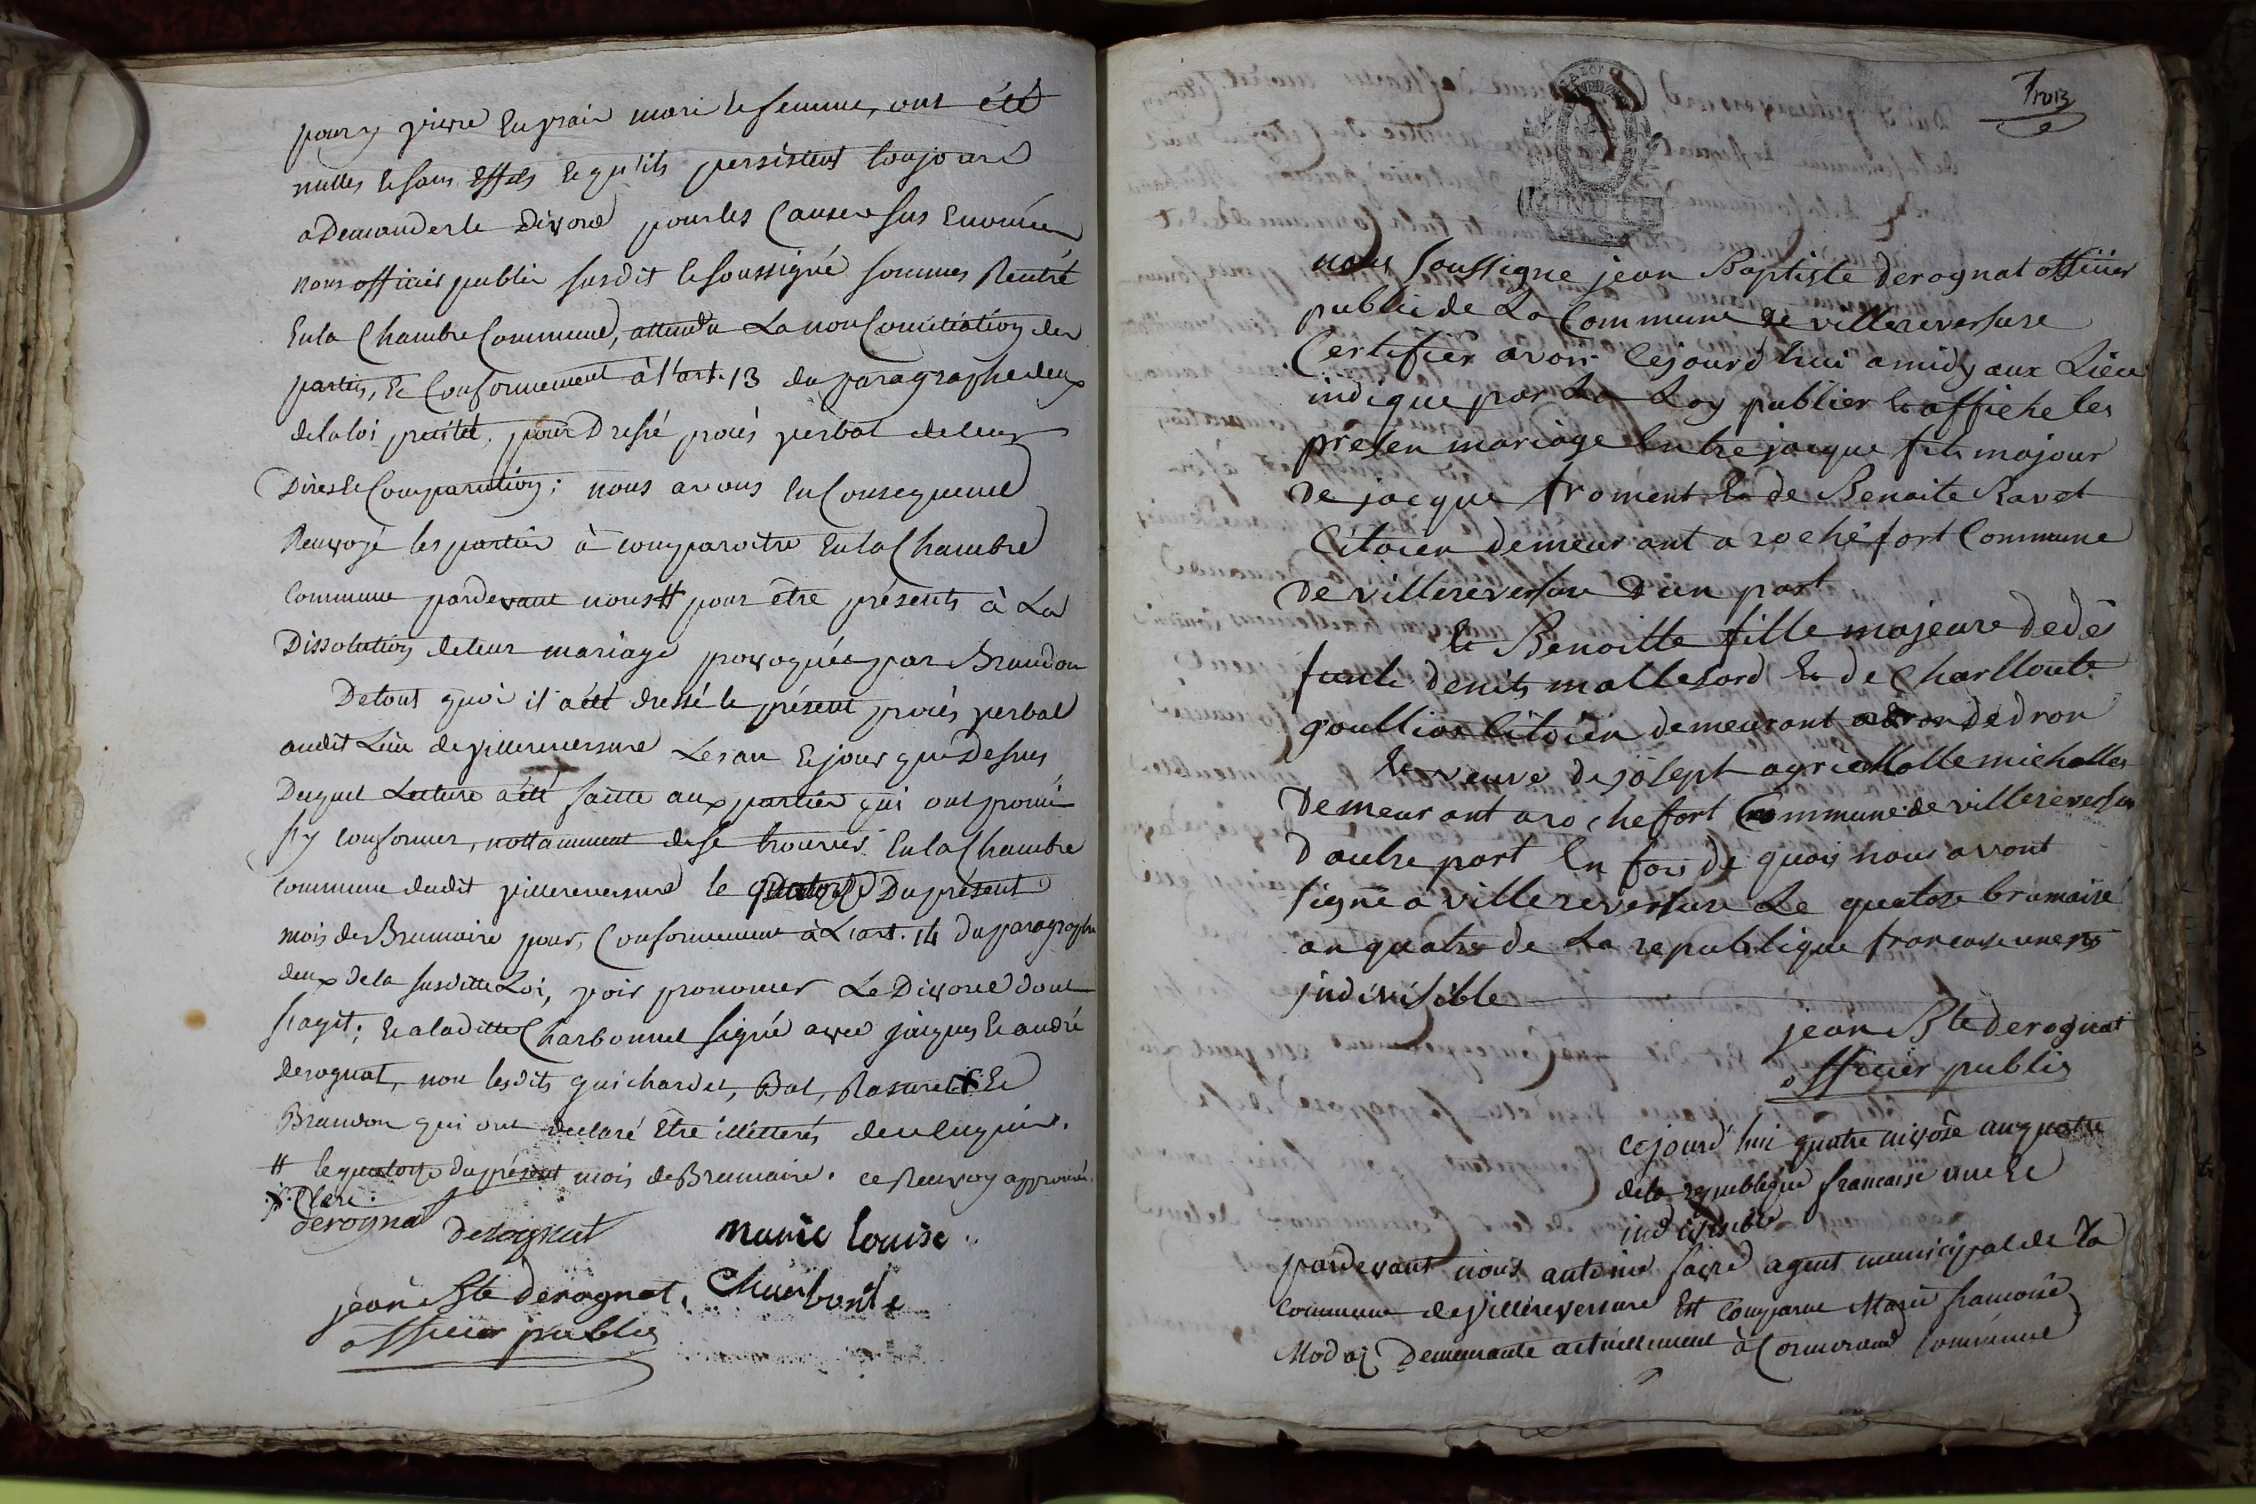 pour y vivre En vrais mari Et femme, ont été
nulles Et sans Effets Et qu'ils persistent toujours
a Demander le Divorce pour les Causes sus Enoncées
nous officier public susdit Et soussigné sommes Rentré
En la Chambre Commune, attendu La non Conciliation des
parties, Et Conformement à l'art. 13 du paragraphe deux
de la loi pour Dressé procés verbal de leurs
Dires Et Comparution; nous avons En Consequence
Renvoyé les parties à comparoitre En la Chambre
Commune pardevant nous # pour être présents à La
Dissolution de leur mariage provoquée par Brandon
De tout quoi il a été dressé le présent procés verbal
audit Lieu de villereversure Les an Et jour que Dessus
Duquel Lecture a été faitte aux parties qui ont promi
s'y conformer, nottamment de se trouver En la Chambre
commune dudit villereversure le quatorze Du présent
mois de Brumaire pour, Conformement à L'art. 14 Du paragraphe
deux de la susditte Loi, voir prononcer Le Divorce dont
s'agit; Et a laditte Charbonnel signé avec jacques Et andré
derognat, non lesdits guichardet, Bal, Rasurel X Et
Brandon qui ont declaré Etre illétterés de ce enquis.
# le quatorze du présent mois de Brumaire. ce Renvoy approuvé.
X Clere.
derognat derognat marie louise
jean Bte derognat, Charbonele
officier public
Trois
MINUTE
nous soussigne jean Baptiste derognat officier
public de La Commune de villereversure
Certifier avoir Cejourd'hui a midy aux Lieu
indique par La Loy publier Et affiche les
presen mariage Entre jacque fils majour
De jacque froment Et de Benoite Ravet
Citoien demeurant a rochefort Commune
De villereversure D'un part
Et Benoitte fille majeure de dé
funt denits mallesard Et de Charlloute
goullion Citoien demeurant a dron de dron
Et veuve de joseph
Demeurant a rochefort Commune de villereversure
D'autre part En foi de quois nous avont
signé a villereversure Le quatose brumaire
an quatre de La republique francaise une Et
jndivisible
jean Bte derognat
officier public
cejourd'hui quatre nivôse an quatre
de la republique francaise une Et
indivisible
pardevant nous antoine favre agent municipal de La
Commune de villereversure Est Comparue Marie francoise
Modas Demeurante actuellement à Cormorand Commune